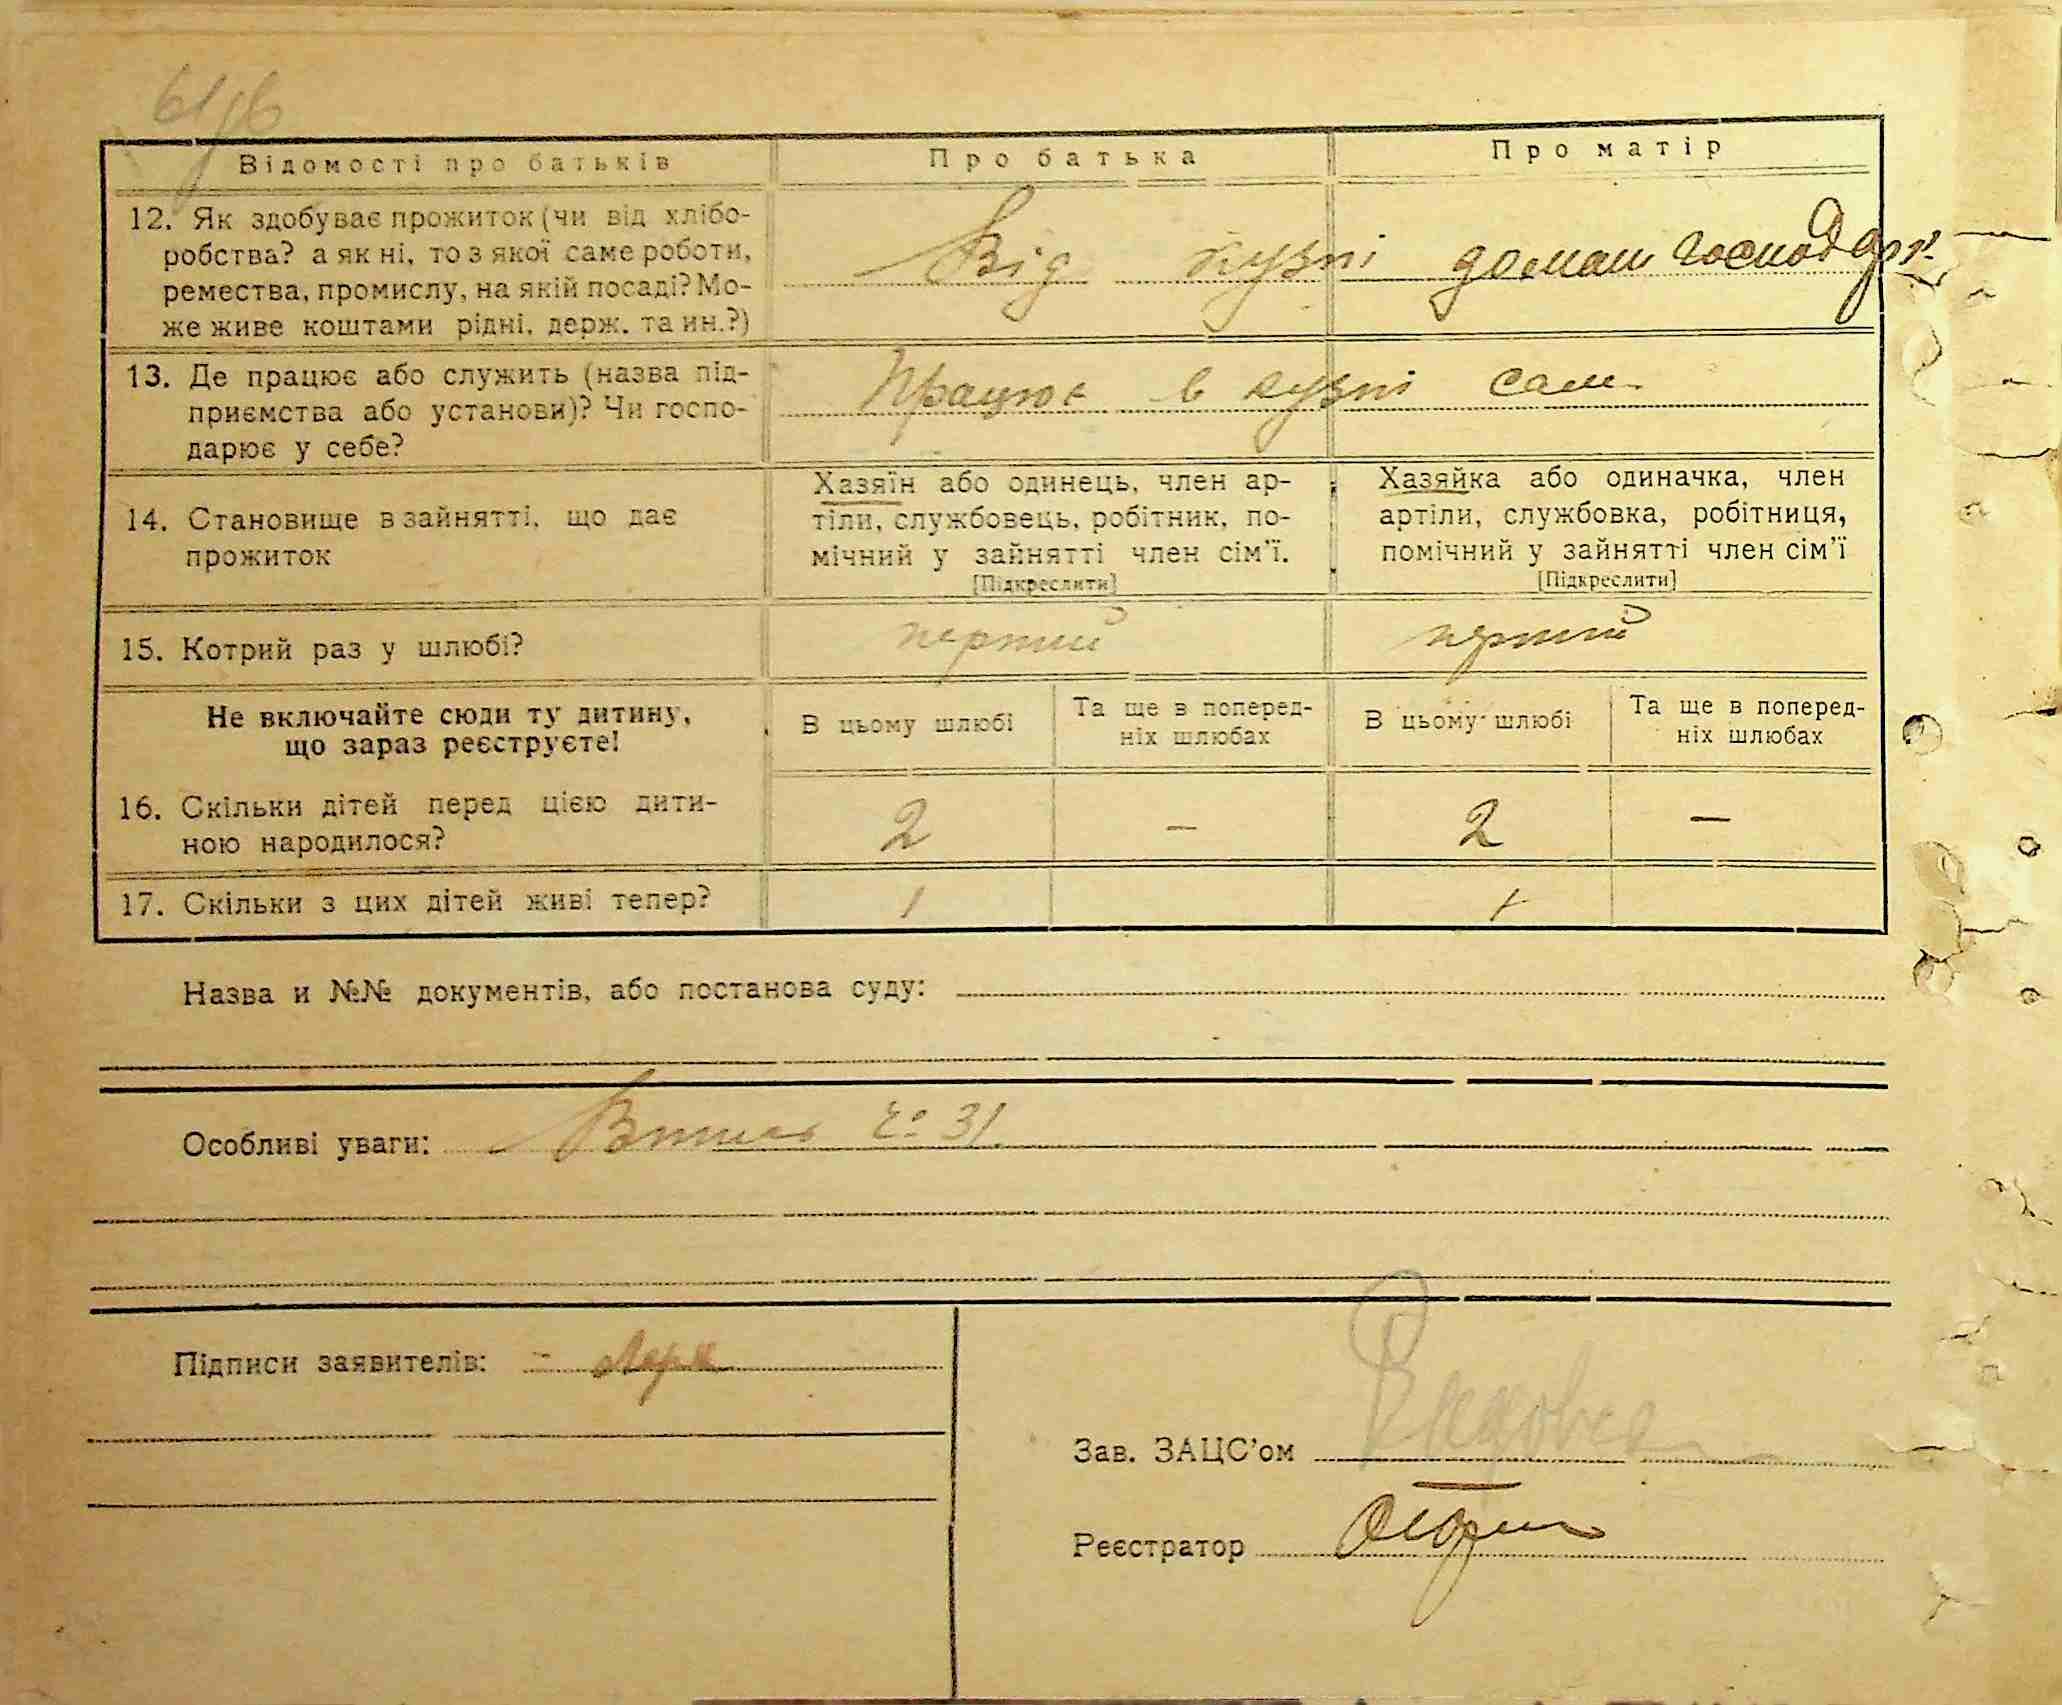 Відомості про батьків
Про батька
Про матір
12. Як здобуває прожиток (чи від хлібо-
робства? а як ні, то з якої саме роботи,
ремества, промислу, на якій посаді? Мо-
же живе коштами рідні, держ. та ин.?)
Від кузні
домаш господар.
13. Де працює або служить (назва під-
приємства або установи)? Чи госпо-
дарює у себе?
Працює в кузні сам
14. Становище в зайнятті, що дає
прожиток
Хазяїн або одинець, член ар-
тіли, службовець, робітник, по-
мічний у зайнятті член сім'ї.
[Підкреслити]
Хазяйка або одиначка, член
артіли, службовка, робітниця,
помічний у зайнятті член сім'ї
[Підкреслити]
15. Котрий раз у шлюбі?
перший
перший
Не включайте сюди ту дитину,
що зараз реєструєте!
В цьому шлюбі
Та ще в поперед-
ніх шлюбах
В цьому шлюбі
Та ще в поперед-
ніх шлюбах
16. Скільки дітей перед цією дити-
ною народилося?
2
—
2
—
17. Скільки з цих дітей живі тепер?
1
1
Назва и №№ документів, або постанова суду:
Особливі уваги: 31
Підписи заявителів:
Зав. ЗАЦС'ом
Реєстратор